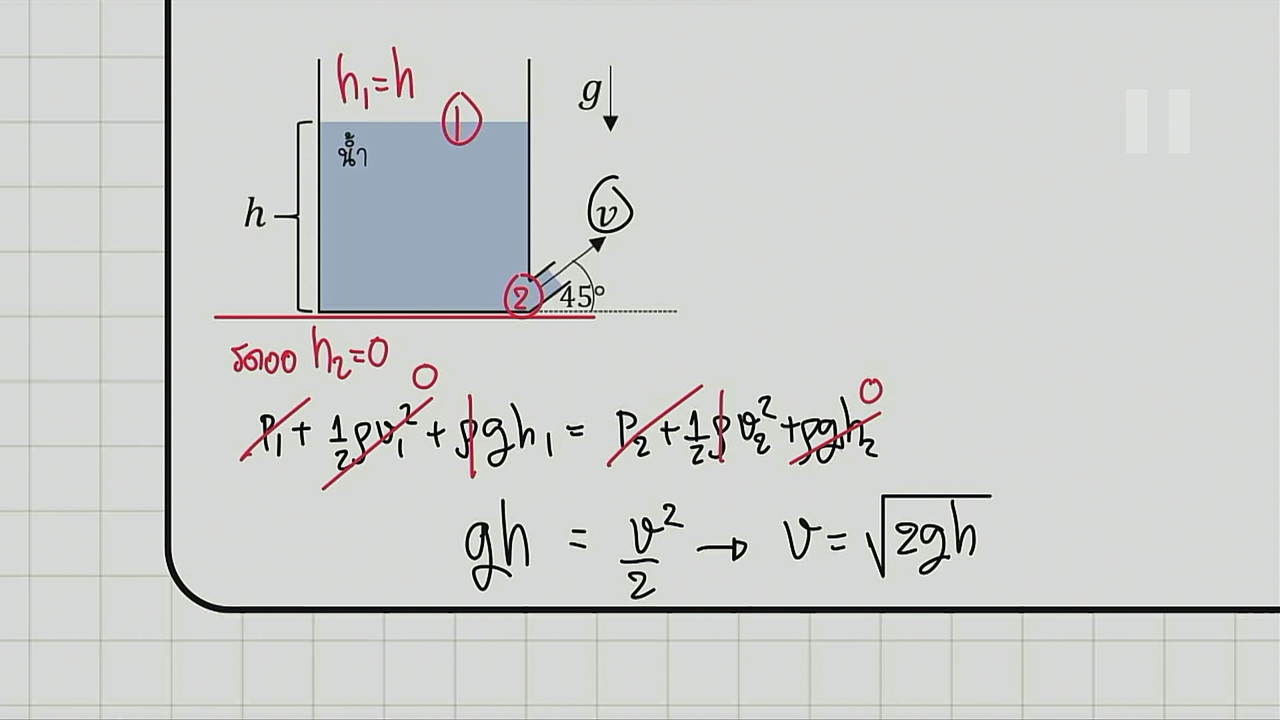 h₁=h
①
g
น้ำ
h
v
②
45°
h₂=0
0
0
P₁ + ½ρv₁² + ρgh₁ = P₂ + ½ρv₂² + ρgh₂
gh = v²/2 → v = √2gh